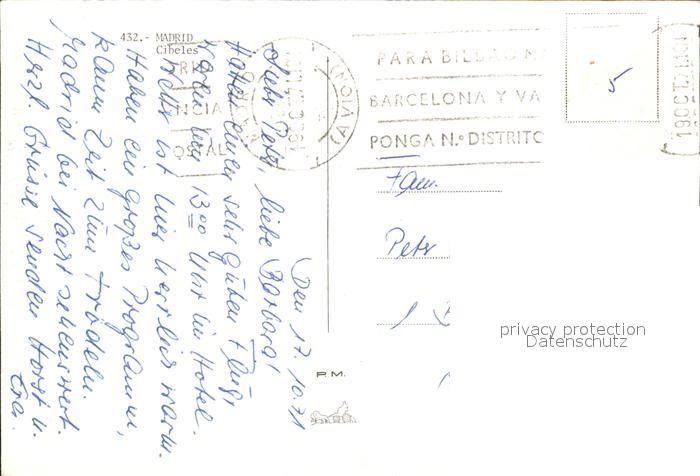 432.- MADRID
Cibeles
Den 17.10.71
Liebe Petr, liebe Barbara!
Hatten einen sehr guten Flug,
waren um 13 00 Uhr im Hotel.
Wetter ist hier herrlich warm.
Haben ein großes Programm,
kaum Zeit zum Trödeln.
Madrid bei Nacht sehenswert.
Herzl. Grüsse senden Horst u.
Eva.
PARA BILBAO M
BARCELONA Y VA
PONGA N.º DISTRITO
(AVION)
19 OCT 71
5
Fam.
Petr
privacy protection
Datenschutz
P.M.